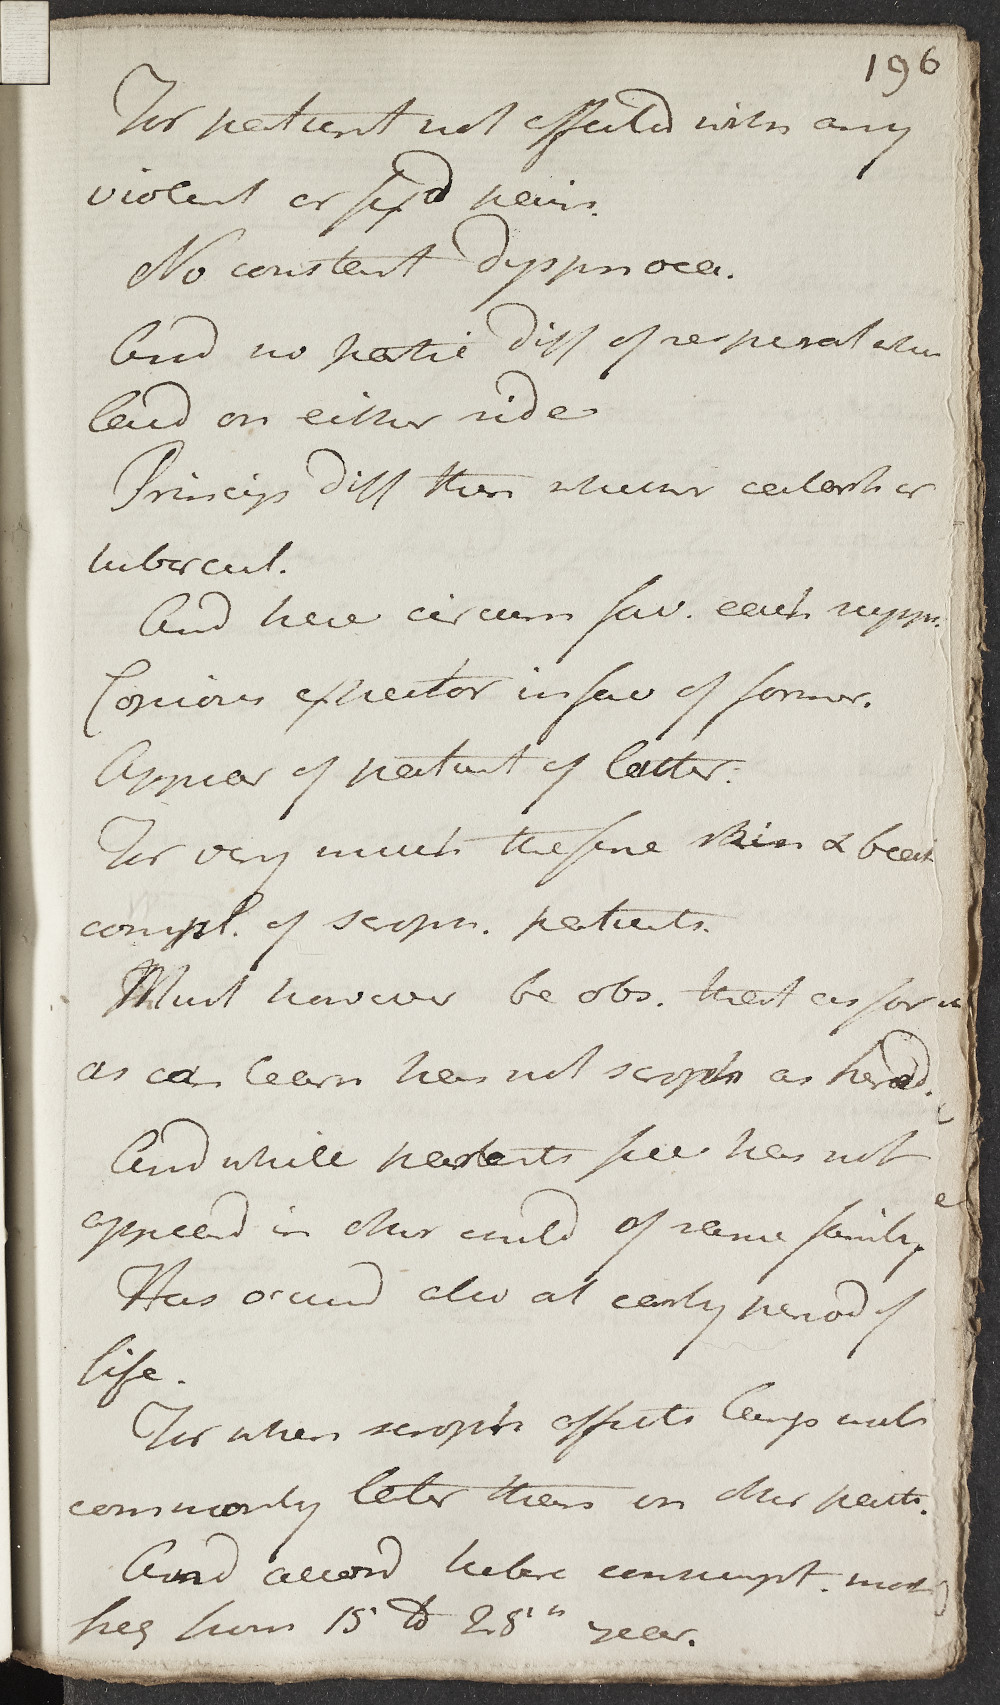 196
For patient not affected with any
violent or fix'd pain.
No constant Dyspnoea.
And no partic Diff of respirat when
laid on either side
Princip Diff then whether catarrh or
tubercul.
And here circum fav. each supp.
Copious expector in fav of former.
Appear of patient of latter.
For very much the fine skin & beaut
compl. of scroph. patients.
Must however be obs. that as far
as can learn has not scroph as hered.
And while parents free has not
appeard in other child of same family.
Has occurd also at early period of
life.
For when scroph affects lungs much
commonly later than on other parts.
And accord tuberc consumpt. most
freq from 15 to 28" year.